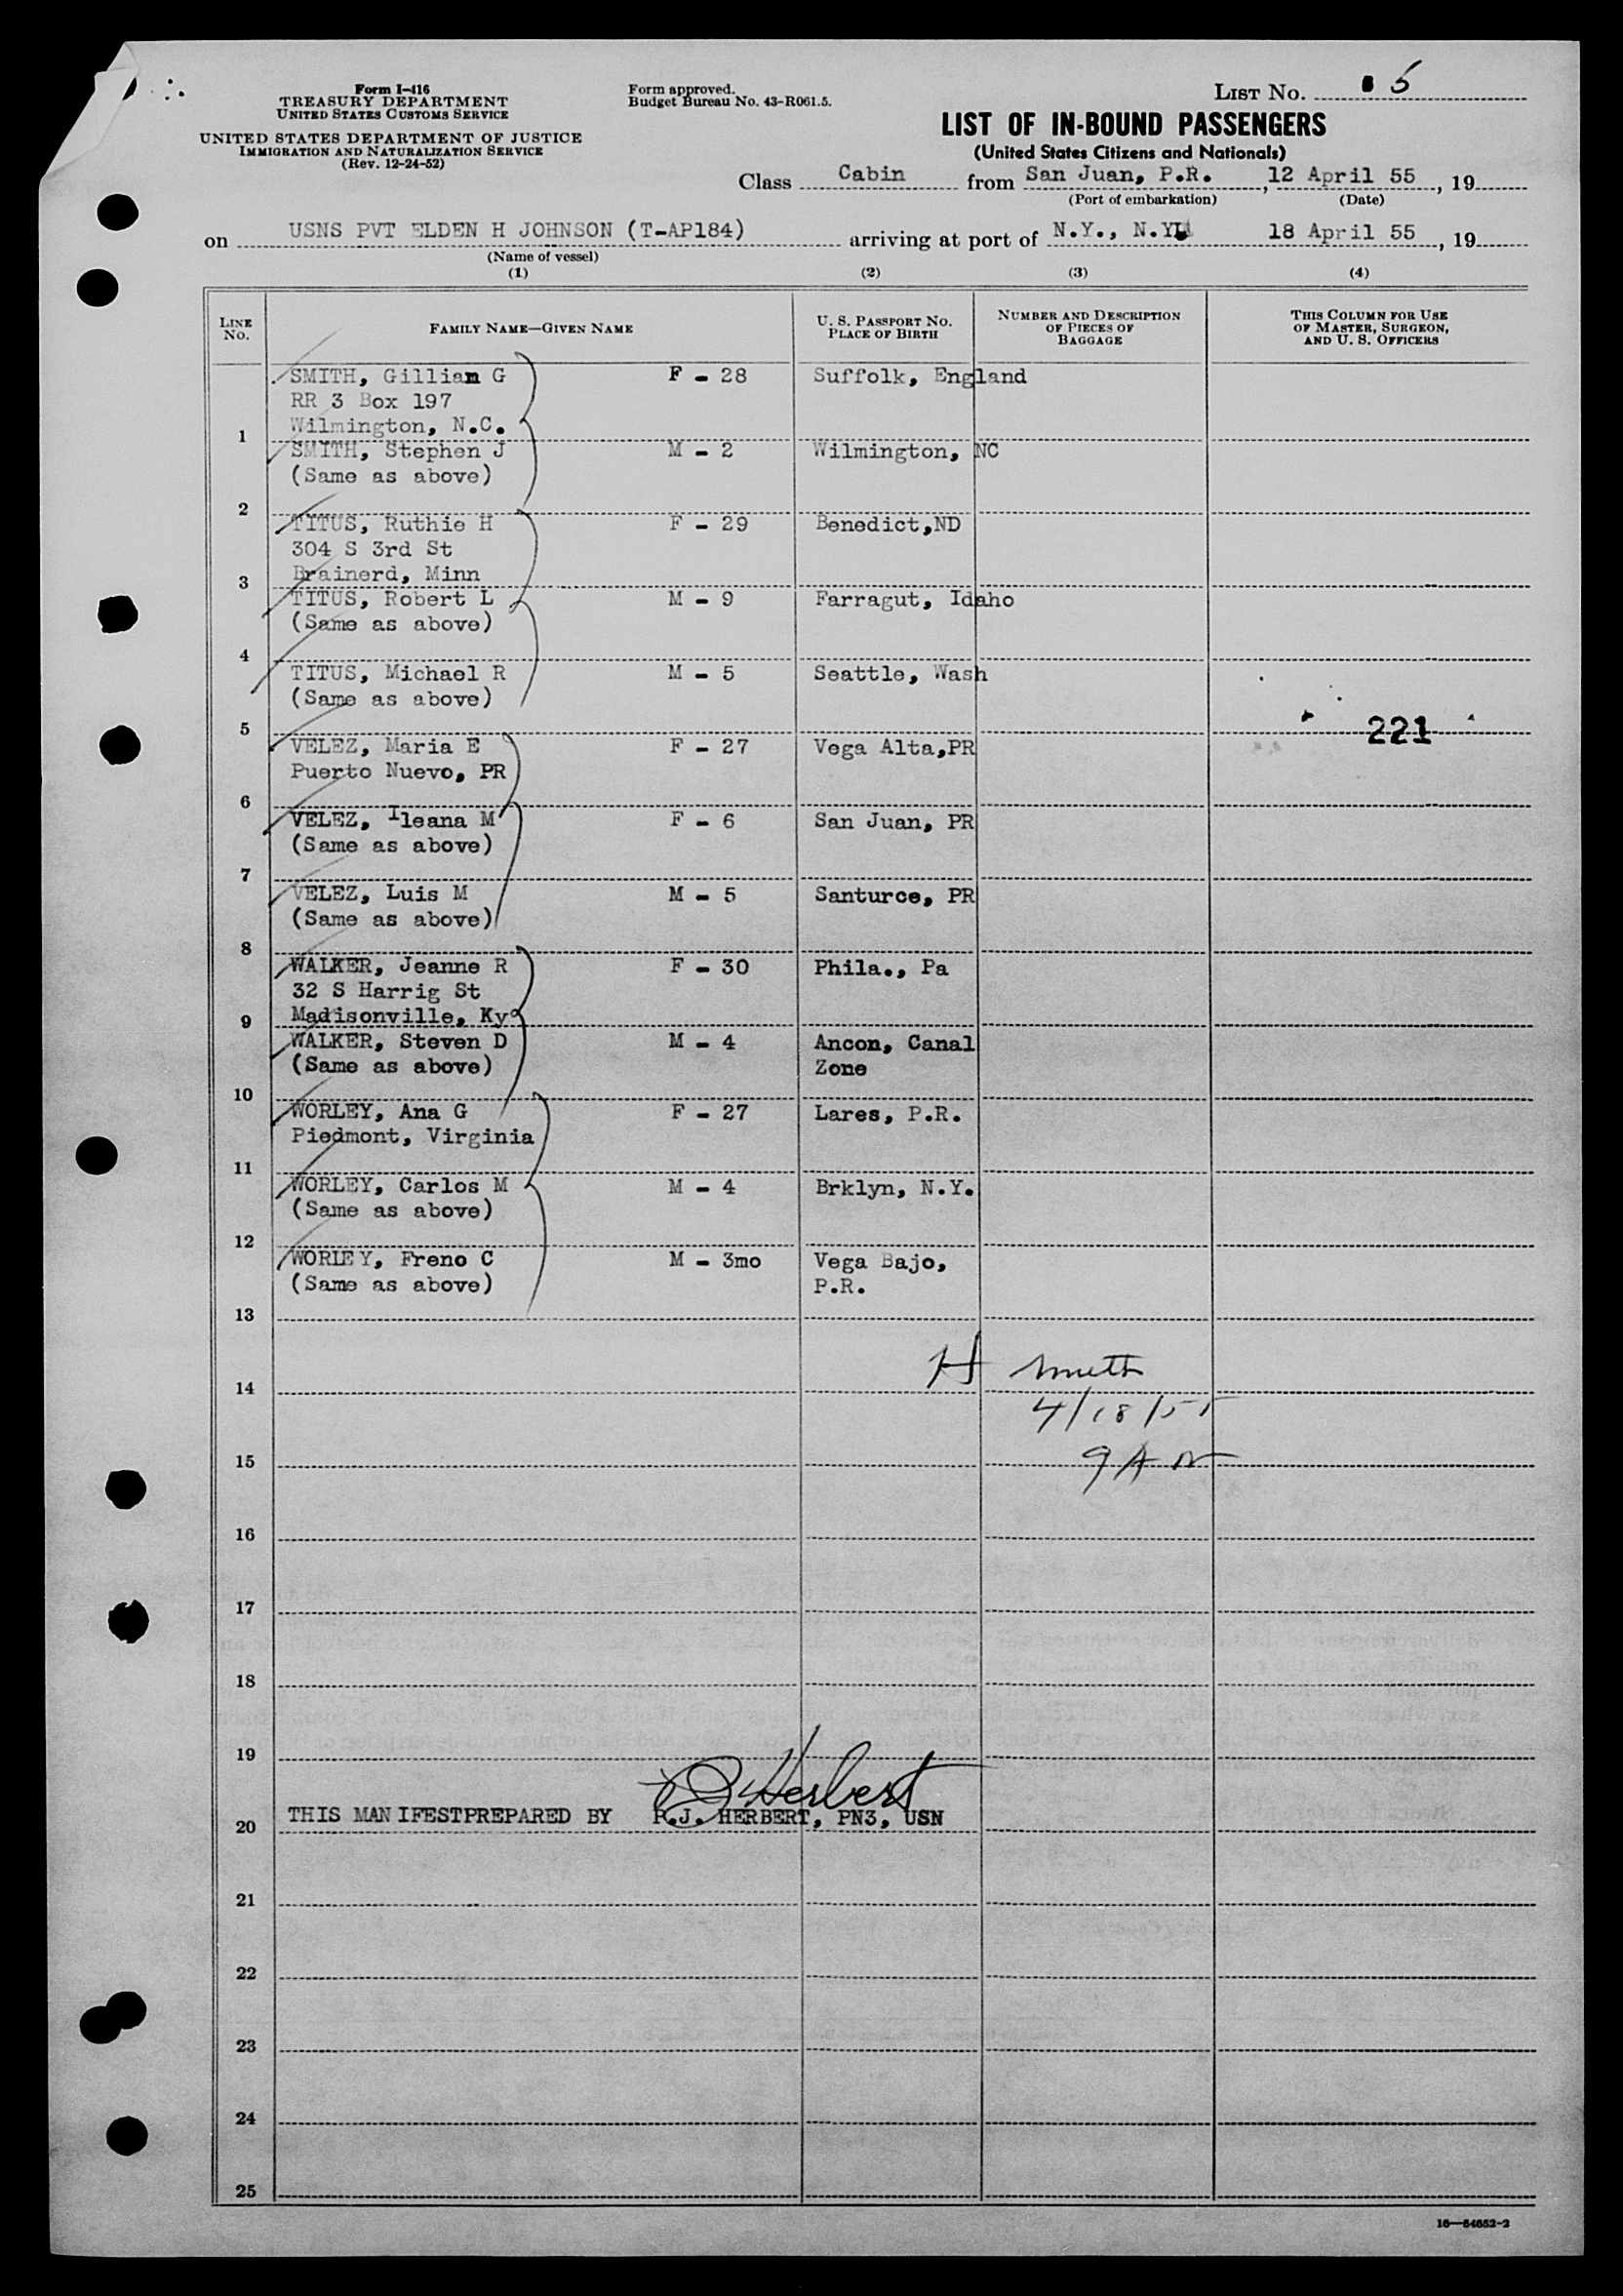 Form I-416
TREASURY DEPARTMENT
UNITED STATES CUSTOMS SERVICE
UNITED STATES DEPARTMENT OF JUSTICE
IMMIGRATION AND NATURALIZATION SERVICE
(Rev. 12-24-52)
Form approved.
Budget Bureau No. 43-R061.5.
LIST NO. 5
LIST OF IN-BOUND PASSENGERS
(United States Citizens and Nationals)
Class Cabin from San Juan, P.R., 12 April 55, 19
(Port of embarkation) (Date)
on USNS PVT ELDEN H JOHNSON (T-AP184) arriving at port of N.Y., N.Y. 18 April 55, 19
(Name of vessel)
(1) (2) (3) (4)
LINE NO. FAMILY NAME—GIVEN NAME U. S. PASSPORT NO. PLACE OF BIRTH NUMBER AND DESCRIPTION OF PIECES OF BAGGAGE THIS COLUMN FOR USE OF MASTER, SURGEON, AND U. S. OFFICERS
SMITH, Gillian G F - 28 Suffolk, England
RR 3 Box 197
1 Wilmington, N.C.
SMITH, Stephen J M - 2 Wilmington, NC
(Same as above)
2
TITUS, Ruthie H F - 29 Benedict,ND
304 S 3rd St
3 Brainerd, Minn
TITUS, Robert L M - 9 Farragut, Idaho
(Same as above)
4
TITUS, Michael R M - 5 Seattle, Wash
(Same as above)
5 221
VELEZ, Maria E F - 27 Vega Alta,PR
Puerto Nuevo, PR
6
VELEZ, Ileana M F - 6 San Juan, PR
(Same as above)
7
VELEZ, Luis M M - 5 Santurce, PR
(Same as above)
8
WALKER, Jeanne R F - 30 Phila., Pa
32 S Harrig St
9 Madisonville, Ky
WALKER, Steven D M - 4 Ancon, Canal
(Same as above) Zone
10
WORLEY, Ana G F - 27 Lares, P.R.
Piedmont, Virginia
11
WORLEY, Carlos M M - 4 Brklyn, N.Y.
(Same as above)
12
WORLEY, Freno C M - 3mo Vega Bajo,
(Same as above) P.R.
13
H Smith
14
4/18/55
15 9 AM
16
17
18
19
RJ Herbert
20 THIS MANIFESTPREPARED BY R.J. HERBERT, PN3, USN
21
22
23
24
25
16—64652-2